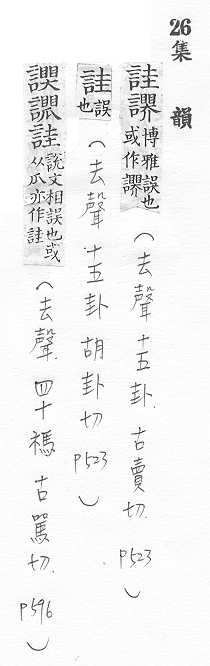 26
集韻
詿䜰 博雅誤也或作䜰（去聲十五卦. 古賣切. P523）
詿 誤也（去聲十五卦 胡卦切 P523）
詿 說文相誤也或从瓜亦作詿（去聲. 四十禡 古罵切. P596）